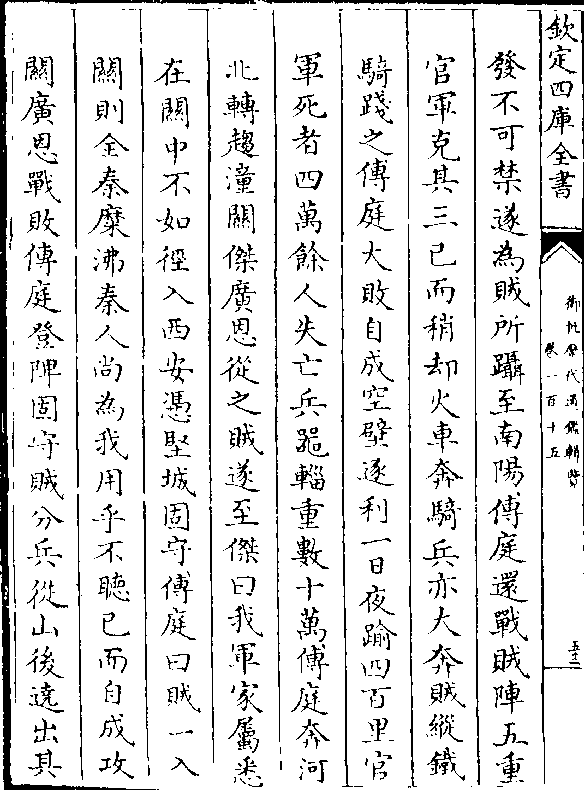 欽定四庫全書
御批歷代通鑑輯覽
卷一百十五
五十二
發不可禁遂為賊所躡至南陽傅庭還戰賊陣五重
官軍克其三已而稍却火車奔騎兵亦大奔賊縱鐵
騎踐之傅庭大敗自成空壁逐利一日夜踰四百里官
軍死者四萬餘人失亡兵器輜重數十萬傅庭奔河
北轉趨潼關傑廣恩從之賊遂至傑曰我軍家屬悉
在關中不如徑入西安憑堅城固守傅庭曰賊一入
關則全秦糜沸秦人尚為我用乎不聽已而自成攻
關廣恩戰敗傅庭登陴固守賊分兵從山後遶出其